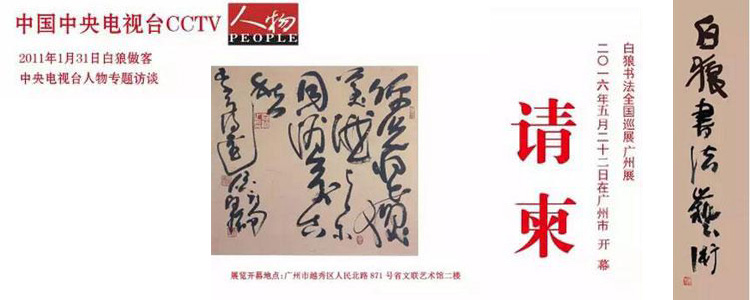 中国中央电视台CCTV
人物
PEOPLE
2011年1月31日白狼做客
中央电视台人物专题访谈
白狼书法全国巡展 广州展
二〇一六年五月二十二日在广州市 开 幕
请柬
展览开幕地点:广州市越秀区人民北路871号省文联艺术馆二楼
白狼書法藝術